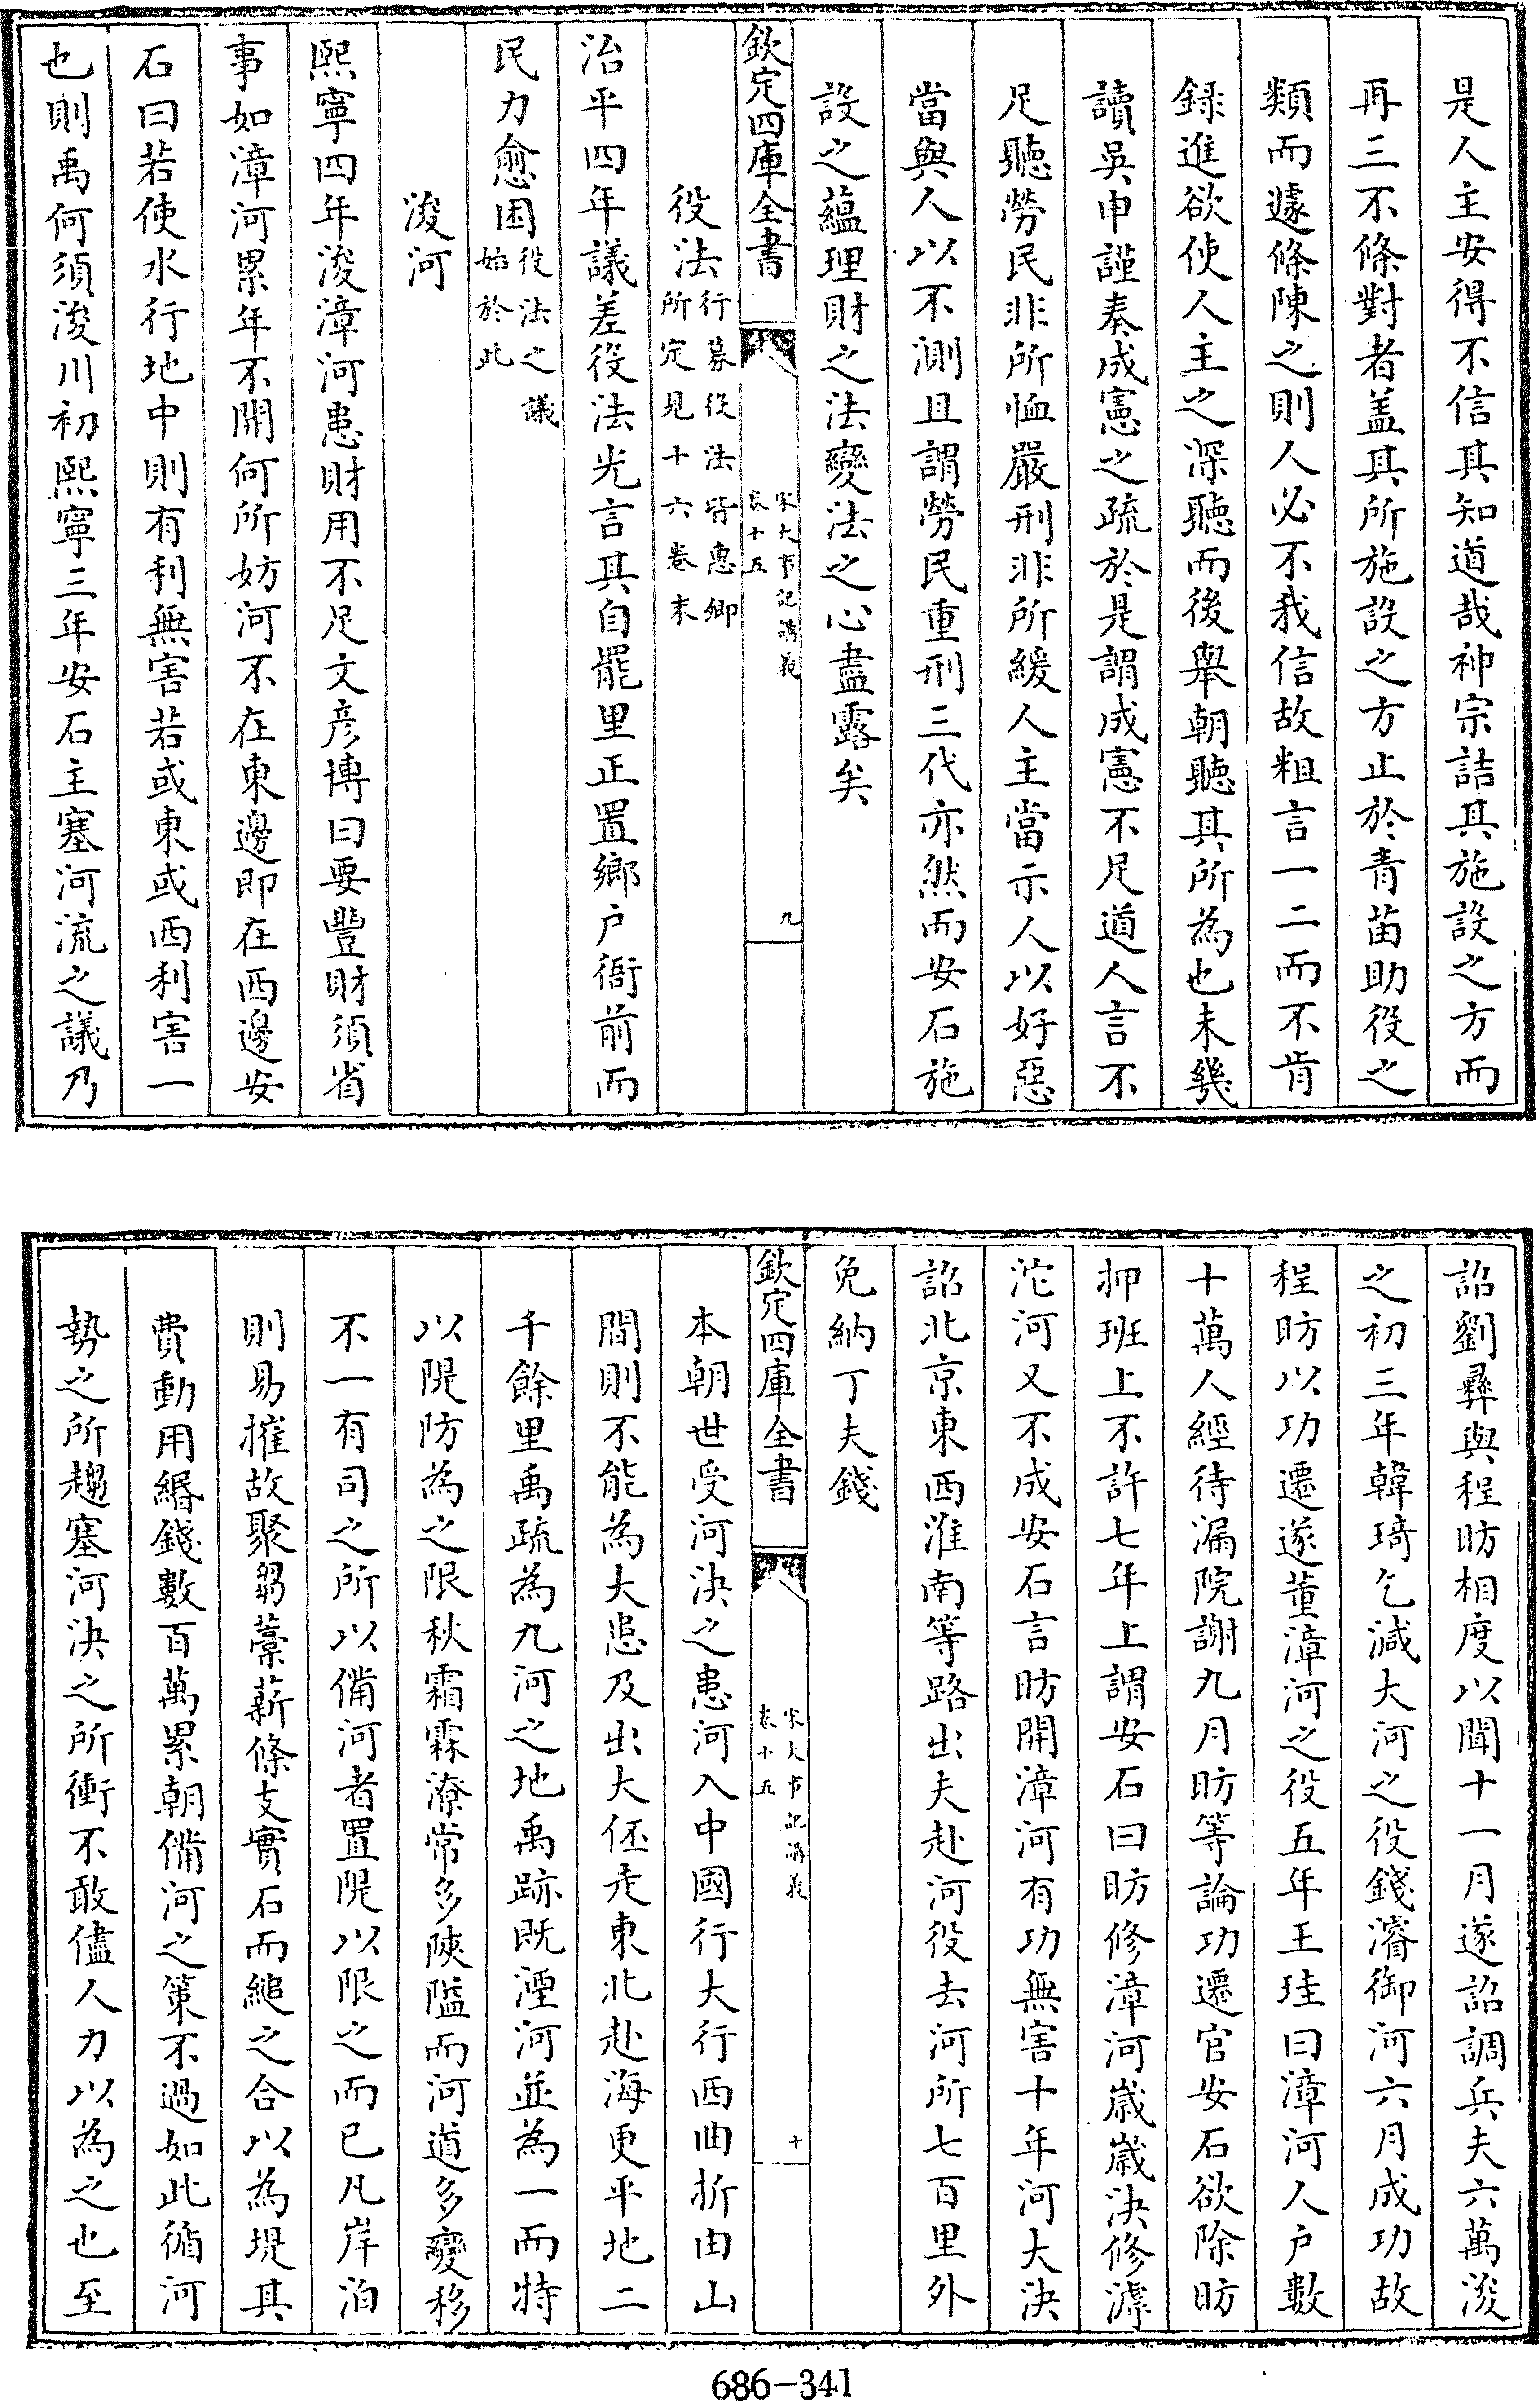 是人主安得不信其知道哉神宗詰其施設之方而
再三不條對者盖其所施設之方止於青苗助役之
類而遽條陳之則人必不我信故粗言一二而不肯
録進欲使人主之深聽而後舉朝聽其所為也未幾
讀吳申謹奏成憲之疏於是謂成憲不足道人言不
足聽勞民非所恤嚴刑非所緩人主當示人以好惡
當與人以不測且謂勞民重刑三代亦然而安石施
設之蘊理財之法變法之心盡露矣
欽定四庫全書
宋大事記講義
卷十五
九
役法行募役法皆惠卿
所定見十六卷末
治平四年議差役法光言其自罷里正置鄉户衙前而
民力愈困役法之議
始於此
浚河
熙寧四年浚漳河患財用不足文彦博曰要豐財須省
事如漳河累年不開何所妨河不在東邊即在西邊安
石曰若使水行地中則有利無害若或東或西利害一
也則禹何須浚川初熙寧三年安石主塞河流之議乃
詔劉彞與程昉相度以聞十一月遂詔調兵夫六萬浚
之初三年韓琦乞減大河之役錢濬御河六月成功故
程昉以功遷遂董漳河之役五年王珪曰漳河人户數
十萬人經待漏院謝九月昉等論功遷官安石欲除昉
押班上不許七年上謂安石曰昉修漳河嵗嵗決修滹
沱河又不成安石言昉開漳河有功無害十年河大決
詔北京東西淮南等路出夫赴河役去河所七百里外
免納丁夫錢
欽定四庫全書
宋大事記講義
卷十五
十
本朝世受河決之患河入中國行大行西曲折由山
間則不能為大患及出大伾走東北赴海更平地二
千餘里禹疏為九河之地禹跡既湮河並為一而特
以隄防為之限秋霜霖潦常多陿隘而河道多變移
不一有司之所以備河者置隄以限之而已凡岸泊
則易摧故聚芻藁薪條支實石而縋之合以為堤其
費動用緡錢數百萬累朝備河之策不過如此循河
勢之所趨塞河決之所衝不敢儘人力以為之也至
686-341